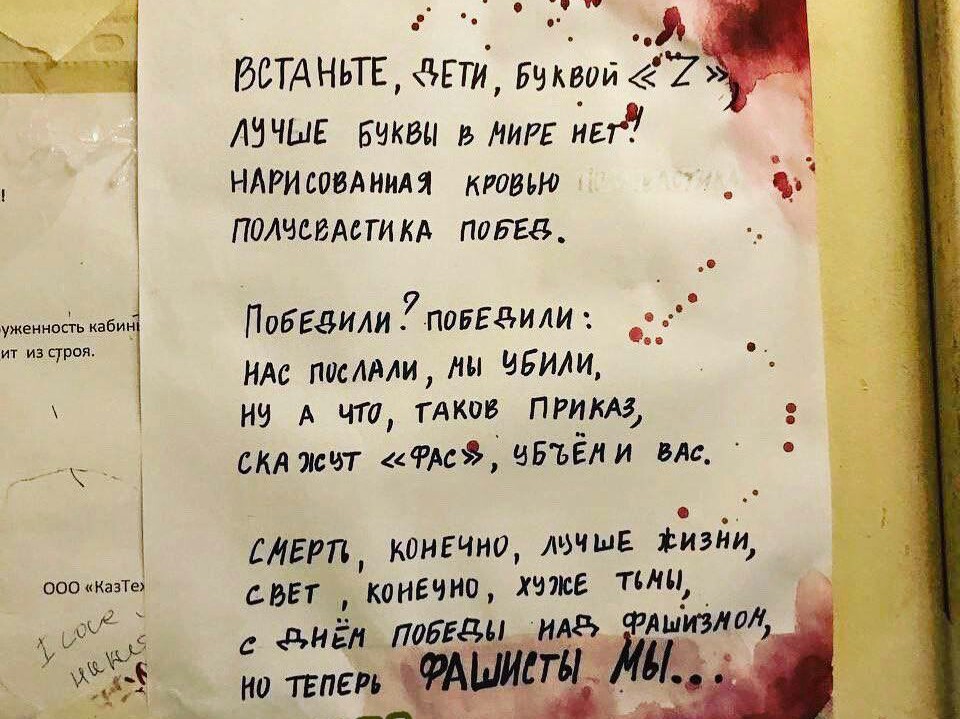 ВСТАНЬТЕ, ДЕТИ, БУКВОЙ «Z»,
ЛУЧШЕ БУКВЫ В МИРЕ НЕТ!
НАРИСОВАННАЯ КРОВЬЮ
ПОЛУСВАСТИКА ПОБЕД.
ПОБЕДИЛИ? ПОБЕДИЛИ:
НАС ПОСЛАЛИ, МЫ УБИЛИ,
НУ А ЧТО, ТАКОВ ПРИКАЗ,
СКАЖУТ «ФАС», УБЪЁМ И ВАС.
СМЕРТЬ, КОНЕЧНО, ЛУЧШЕ ЖИЗНИ,
СВЕТ, КОНЕЧНО, ХУЖЕ ТЬМЫ,
С ДНЁМ ПОБЕДЫ НАД ФАШИЗМОМ,
НО ТЕПЕРЬ ФАШИСТЫ МЫ...
!
уженность кабин
ит из строя.
ООО «КазТех
I love